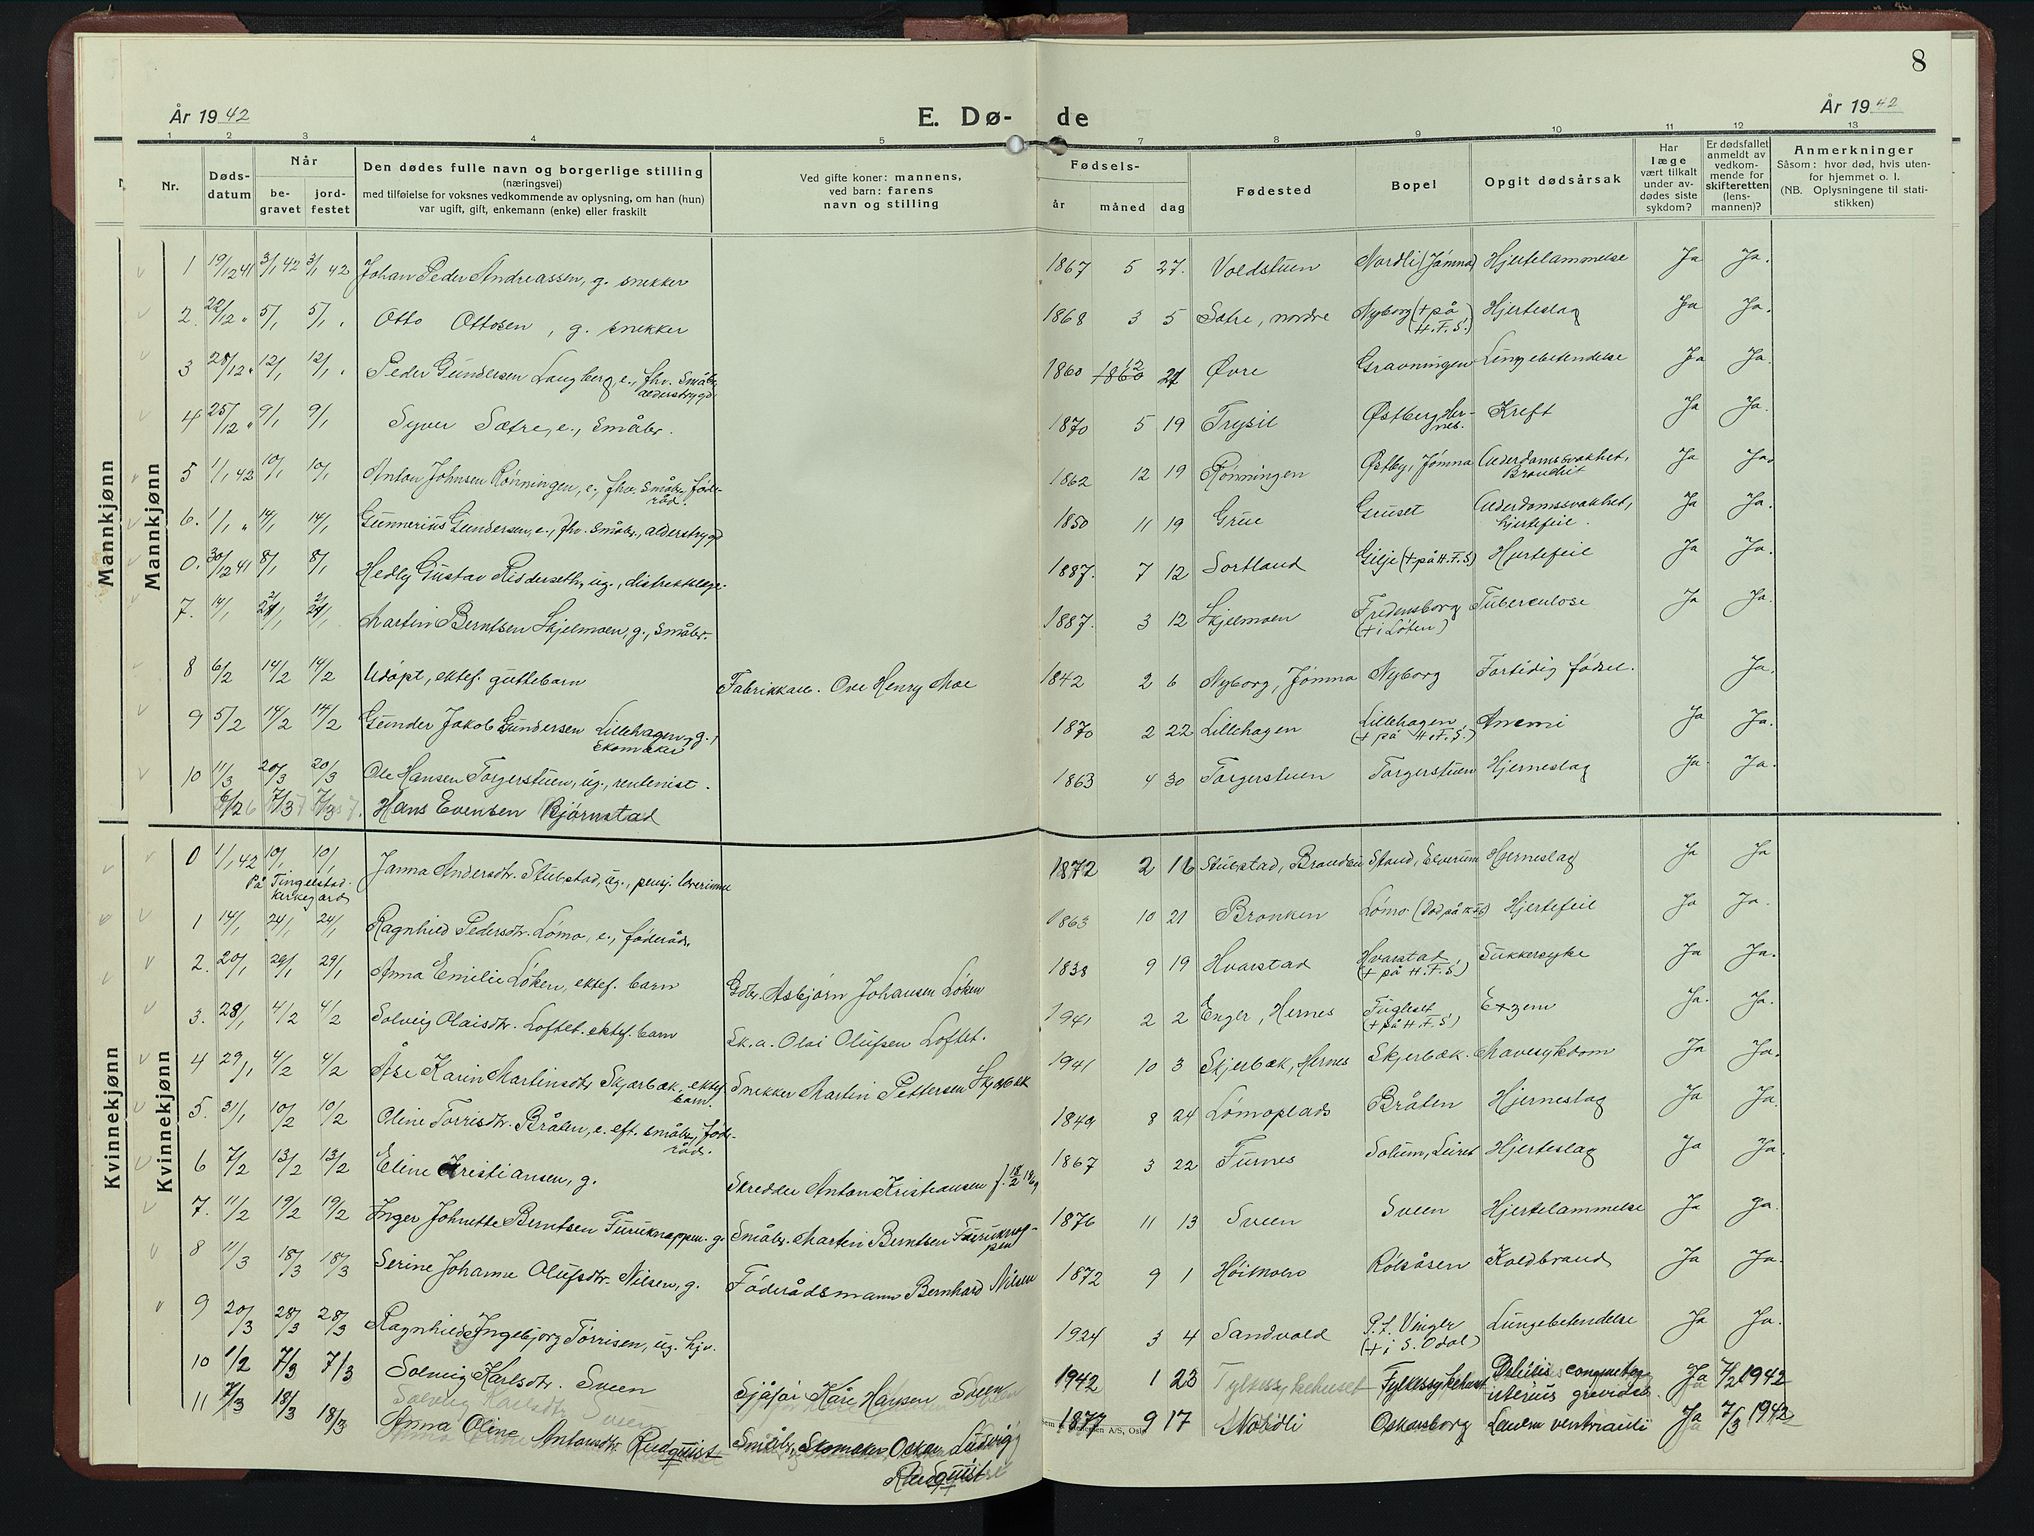 8
År 1942
E. Dø- de
År 1942
1 2 3 4 5 7 8 9 10 11 12 13
Nr.
Døds-
datum
Når
be-
gravet
jord-
festet
Den dødes fulle navn og borgerlige stilling
(næringsvei)
med tilføielse for voksnes vedkommende av oplysning, om han (hun)
var ugift, gift, enkemann (enke) eller fraskilt
Ved gifte koner: mannens,
ved barn: farens
navn og stilling
Fødsels-
år måned dag
Fødested
Bopel
Opgit dødsårsak
Har
læge
vært tilkalt
under av-
dødes siste
sykdom?
Er dødsfallet
anmeldt av
vedkom-
mende for
skifteretten
(lens-
mannen)?
Anmerkninger
Såsom: hvor død, hvis uten-
for hjemmet o. l.
(NB. Oplysningene til stati-
stikken)
Mannkjønn
Mannkjønn
1 19/12 41 3/1 42 3/1 42 Johan Peder Andreassen, g. snekker 1867 5 27. Voldstuen Nordli (Jømna) Hjertelammelse Ja Ja.
2. 22/12 " 5/1 5/1 Otto Ottosen, g. snekker 1868 3 5 Sætre, nordre Nyborg (+ på H.F.S.) Hjerteslag Ja Ja.
3 28/12 " 12/1 12/1 Peder Gundersen Langberg, e., fhv. småbr.
alderstrygd 1860 12 21 Øvre Gravningen Lungebetendelse Ja Ja.
4 25/12 " 9/1 9/1 Syver Sætre, e., småbr. 1870 5 19 Trysil Østberg, Her-
nes. Kreft Ja Ja.
5 1/1 42 10/1 10/1 Anton Johnsen Rønningen, e., fhv. småbr., føde-
råd. 1862 12 19 Rønningen Østby, Jømna Alderdomsvakhet,
Bronchit Ja Ja.
6. 1/1 " 14/1 14/1 Gunnerius Gundersen, e., fhv. småbr., alderstrygd 1850 11 19 Grue Gruset Alderdomsvakhet,
hjertefeil. Ja Ja.
0. 30/12 41 8/1 8/1 Hedly Gustav Ridderseth, ug., distriktslæge. 1887. 7 12 Sortland Gilje (+ på H.F.S) Hjertefeil Ja Ja.
7. 14/1 21/1 21/1 Martin Berntsen Skjelmoen, g., småbr. 1887. 3 12 Skjelmoen Fredensborg
(+ i Løten) Tuberculose Ja Ja.
8 6/2 14/2 14/2 Udøpt, ektef. guttebarn Fabrikkarb. Ove Henry Moe 1842 2 6 Nyborg, Jømna Nyborg Fortidig fødsel. Ja.
9 5/2 14/2 14/2 Gunder Jakob Gundersen Lillehagen, g.,
skomaker 1870 2 22 Lillehagen Lillehagen,
(+ på H.F.S.) Anemi Ja Ja.
10 11/3 20/3 20/3 Ole Hansen Torgerstuen, ug., rentenist. 1863 4 30 Torgerstuen Torgerstuen Hjerneslag Ja. Ja.
7/3 7/3 Hans Evensen Bjørnstad
Kvinnekjønn
Kvinnekjønn
0 1/1 42 10/1 10/1 Janna Andersdtr. Stubstad, ug., pensj. lærerinne 1872 2 16 Stubstad, Brandbu Stand, Elverum Hjerneslag Ja Ja
På Tingelstad
kirkegård
1 14/1 24/1 24/1 Ragnhild Pedersdtr. Lømo, e., føderåds. 1863 10 21 Bronken Lømo (Død på H.F.S) Hjertefeil Ja Ja.
2. 20/1 29/1 29/1 Anna Emilie Løken, ektef. barn Gdbr. Asbjørn Johansen Løken 1838 9 19 Hvarstad Hvarstad,
(+ på H.F.S) Sukkersyke Ja Ja.
3. 28/1 4/2 4/2 Solveig Olaisdtr. Loftet. ektef. barn Sk.a. Olai Olufsen Loftet. 1941 2 2 Enger, Hernes Fugleset
(+ på H.F.S) Exzem Ja. Ja.
4 29/1 4/2 4/2 Åse Karin Martinsdtr. Skjærbæk, ektef.
barn. Snekker Martin Pettersen Skjærbæk 1941 10 3 Skjerbæk, Hernes Skjerbæk. Mavesykdom Ja Ja.
5. 31/1 10/2 10/2 Oline Torrisdtr. Bråten, e. eft. småbr., føde-
råds. 1849 8 24 Lømoplads Bråten Hjerneslag Ja Ja.
6 7/2 13/2 13/2 Eline Kristiansen, g. Skredder Anton Kristiansen f. 18/2 1869 1867 3 22 Furnes Solum, Leiret Hjerteslag Ja Ja.
7. 11/2 19/2 19/2 Inger Johnette Berntsen Furuknappen. g. Småbr. Martin Berntsen Furuknap-
pen 1876 11 13 Sveen Sveen Hjertelammelse Ja Ja.
8 11/3 18/3 18/3 Serine Johanne Olufsdtr. Nilsen, g. Føderådsmann Bernhard Nilsen 1872 9 1 Høimoen Rølsåsen Koldbrand Ja Ja.
9 20/3 28/3 28/3 Ragnhild Ingebjørg Torrisen, ug. hjv. 1924 3 4 Sandvold P.t. Vinger
(+ i S. Odal) Lungebetendelse Ja Ja.
10 1/2 7/3 7/3 Solveig Karlsdtr. Sveen Sjåfør Kåre Hansen Sveen 1942 1 23 Fylkessykehuset Fylkessykehuset Ja 7/2 1942
11 7/3 18/3 18/3 Anna Oline Antonsdtr Rudquist Småbr., Skomaker Oskar Ludvig
Rudquist 1877 9 17 Mobidli Oskarsborg Ja 7/3 1942